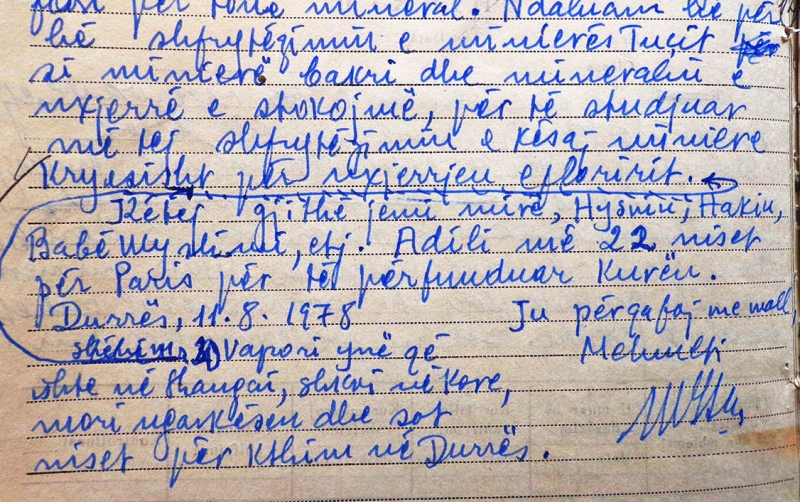 për tonë mineral. Ndaluam be për
bë shfrytëzimin e minierës Tuçit
si minierë bakri dhe mineralin e
nxjerrë e stokojmë, për të studjuar
më tej shfrytëzimin e kësaj miniere
Kryesisht për nxjerrjen e floririt.
Këtej gjithë jemi mirë, Hysniu, Hakiu,
Babë Myslimi, etj. Adili më 22 niset
për Paris për të përfunduar Kurën.
Durrës, 11.8.1978 Ju përqafoj me mall,
Vapori ynë që Mehmeti
shte në Shangai, shkoi në Kore,
mori ngarkesën dhe sot
niset për Kthim në Durrës.